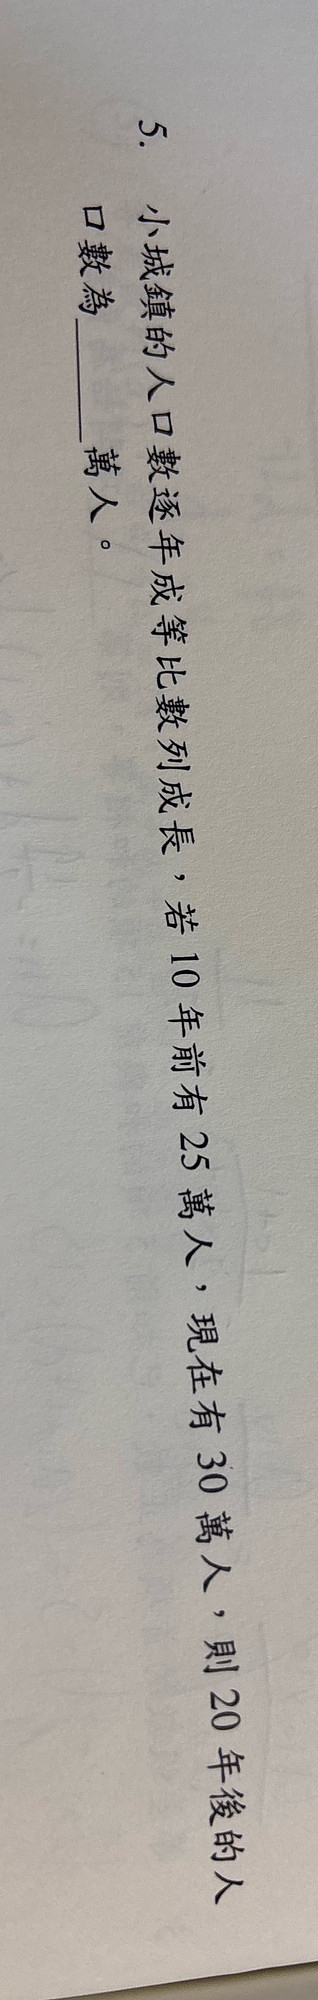 5. 小城鎮的人口數逐年成等比數列成長，若10年前有25萬人，現在有30萬人，則20年後的人
口數為______萬人。